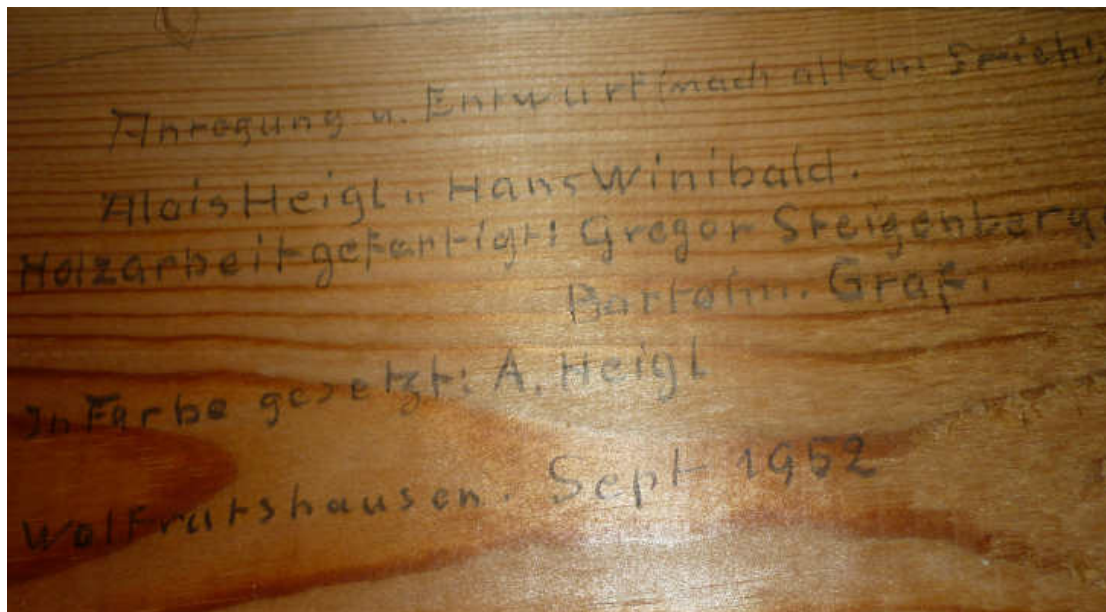 Anregung u. Entwurf (nach altem
Alois Heigl u. Hans Winibald.
Holzarbeit gefertigt: Gregor Steigenberg
Bartolm. Graf.
In Farbe gesetzt: A. Heigl
Wolfratshausen. Sept 1952